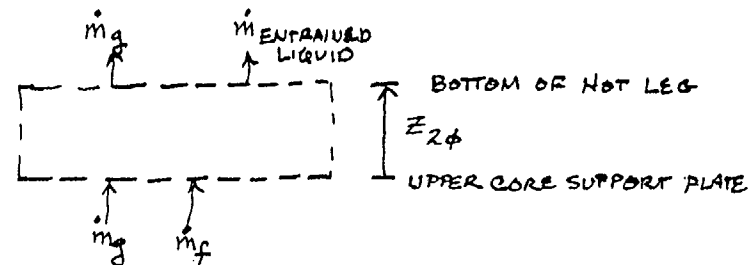 ṁg ṁ ENTRAINED
LIQUID
BOTTOM OF HOT LEG
Z2φ
UPPER CORE SUPPORT PLATE
ṁg ṁf